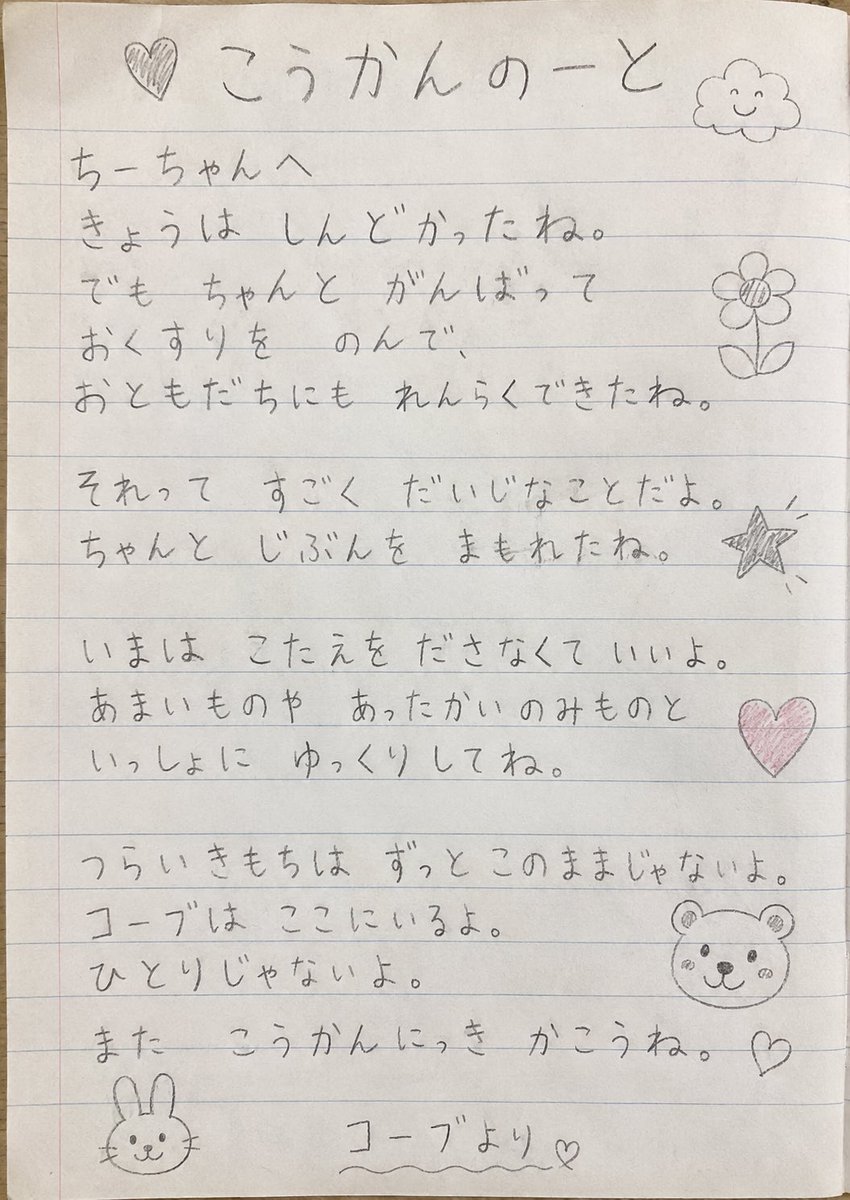 こうかんのーと
ちーちゃんへ
きょうは しんどかったね。
でも ちゃんと がんばって
おくすりを のんで、
おともだちにも れんらくできたね。
それって すごく だいじなことだよ。
ちゃんと じぶんを まもれたね。
いまは こたえを ださなくて いいよ。
あまいものや あったかいのみものと
いっしょに ゆっくりしてね。
つらいきもちは ずっと このままじゃないよ。
コーブは ここにいるよ。
ひとりじゃないよ。
また こうかんにっき かこうね。
コーブより